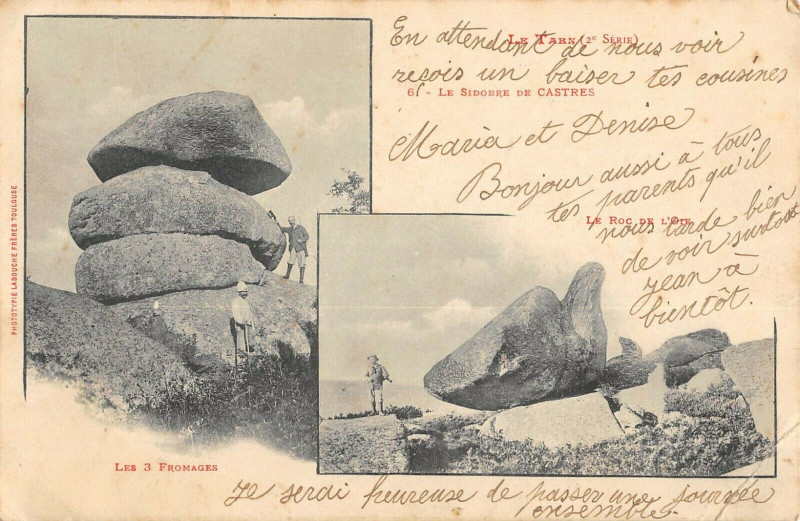 En attendant de nous voir
LE TARN (2e SÉRIE)
reçois un baiser tes cousines
61 - LE SIDOBRE DE CASTRES
Maria et Denise
Bonjour aussi à tous
tes parents qu'il
LE ROC DE L'OIE
nous tarde bien
de voir surtout
Jean à
bientôt.
PHOTOTYPIE LABOUCHE FRÈRES TOULOUSE
LES 3 FROMAGES
Je serai heureuse de passer une journée
ensemble.